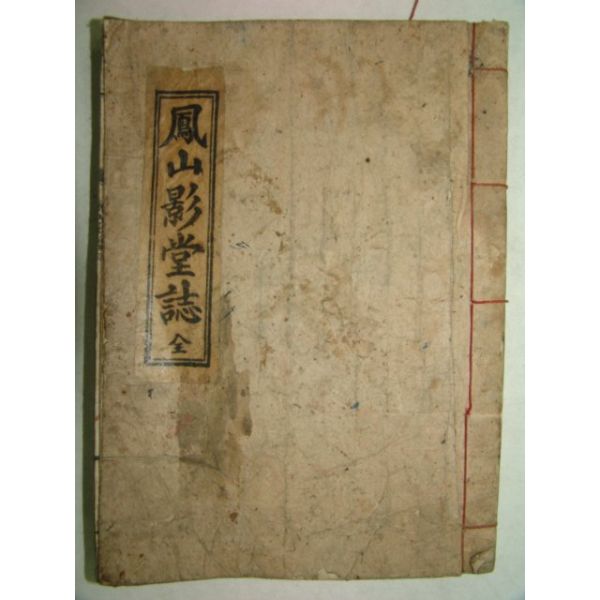 鳳山影堂誌 全